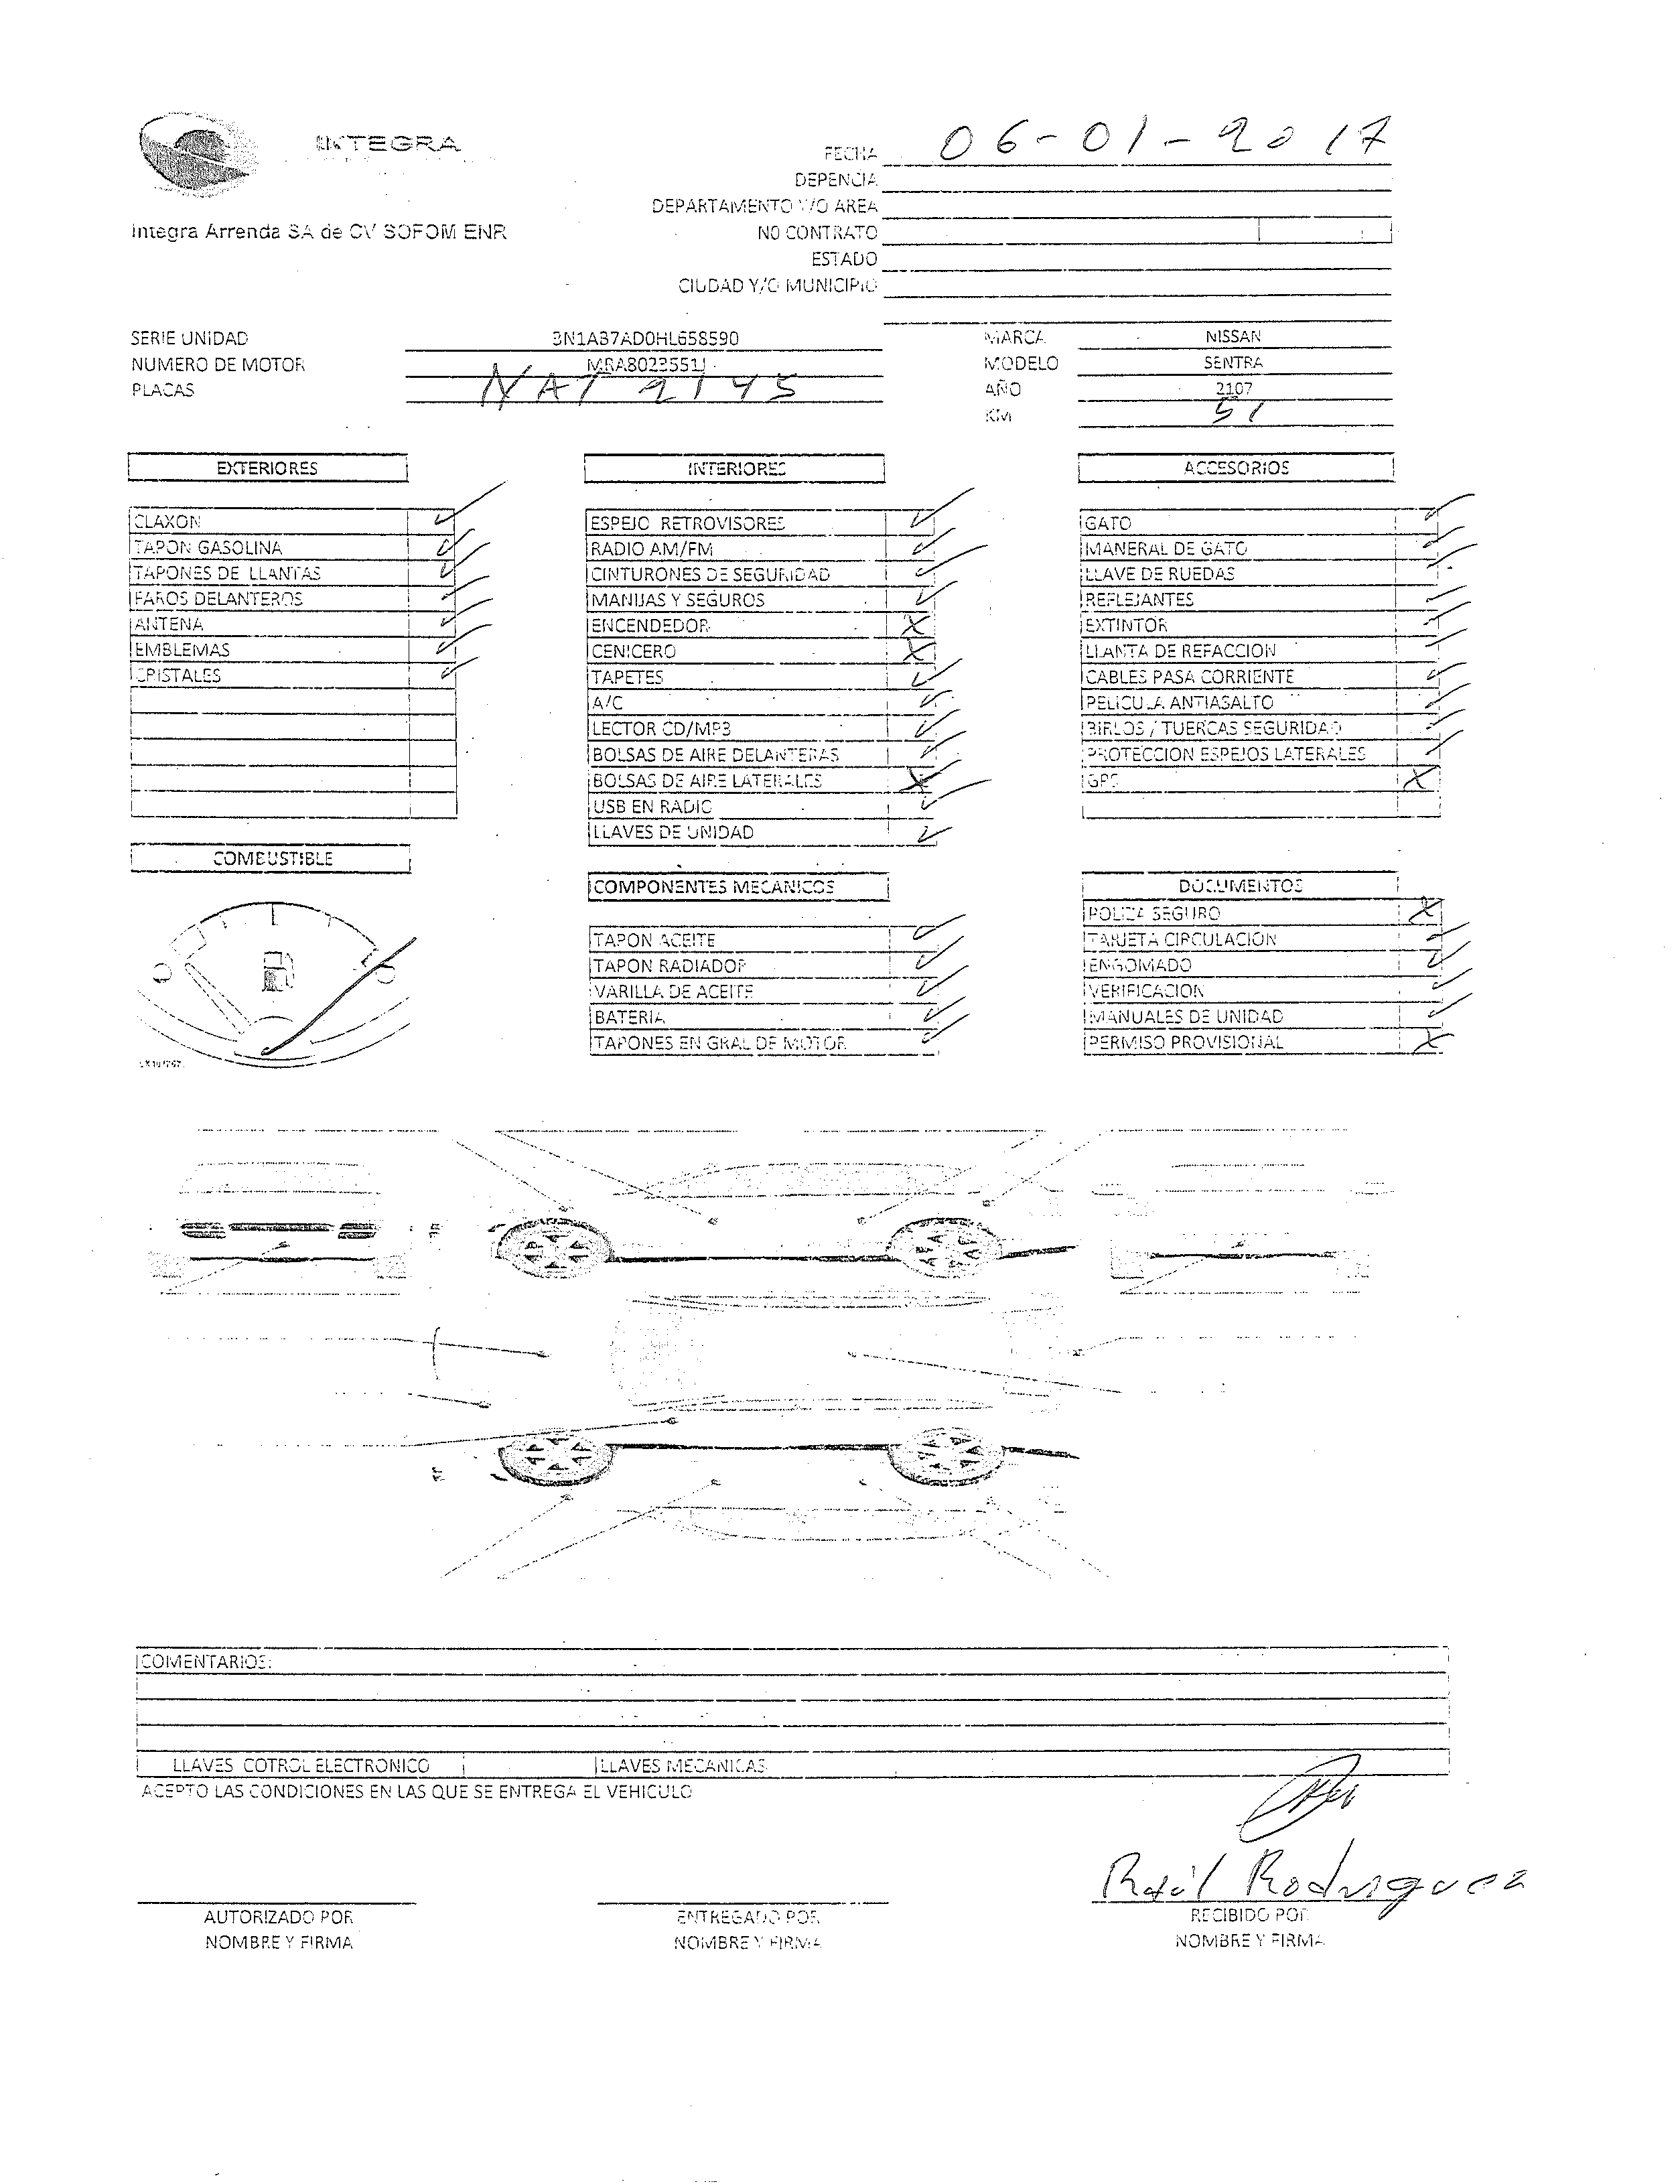 INTEGRA
Integra Arrenda SA de CV SOFOM ENR
FECHA 06-01-2017
DEPENCIA
DEPARTAMENTO Y/O AREA
NO CONTRATO
ESTADO
CIUDAD Y/O MUNICIPIO
SERIE UNIDAD 3N1AB7AD0HL658590 MARCA NISSAN
NUMERO DE MOTOR MRA8023551J MODELO SENTRA
PLACAS NAT 9145 AÑO 2107
KM 51
EXTERIORES
CLAXON
TAPON GASOLINA
TAPONES DE LLANTAS
FAROS DELANTEROS
ANTENA
EMBLEMAS
CRISTALES
COMBUSTIBLE
INTERIORES
ESPEJO RETROVISORES
RADIO AM/FM
CINTURONES DE SEGURIDAD
MANIJAS Y SEGUROS
ENCENDEDOR X
CENICERO X
TAPETES
A/C
LECTOR CD/MP3
BOLSAS DE AIRE DELANTERAS
BOLSAS DE AIRE LATERALES X
USB EN RADIO
LLAVES DE UNIDAD
COMPONENTES MECANICOS
TAPON ACEITE
TAPON RADIADOR
VARILLA DE ACEITE
BATERIA
TAPONES EN GRAL DE MOTOR
ACCESORIOS
GATO
MANERAL DE GATO
LLAVE DE RUEDAS
REFLEJANTES
EXTINTOR
LLANTA DE REFACCION
CABLES PASA CORRIENTE
PELICULA ANTIASALTO
BIRLOS / TUERCAS SEGURIDAD
PROTECCION ESPEJOS LATERALES
GPS X
DOCUMENTOS
POLIZA SEGURO X
TARJETA CIRCULACION
ENGOMADO
VERIFICACION
MANUALES DE UNIDAD
PERMISO PROVISIONAL X
COMENTARIOS:
LLAVES COTROL ELECTRONICO LLAVES MECANICAS
ACEPTO LAS CONDICIONES EN LAS QUE SE ENTREGA EL VEHICULO
Raúl Rodriguez
AUTORIZADO POR ENTREGADO POR RECIBIDO POR
NOMBRE Y FIRMA NOMBRE Y FIRMA NOMBRE Y FIRMA